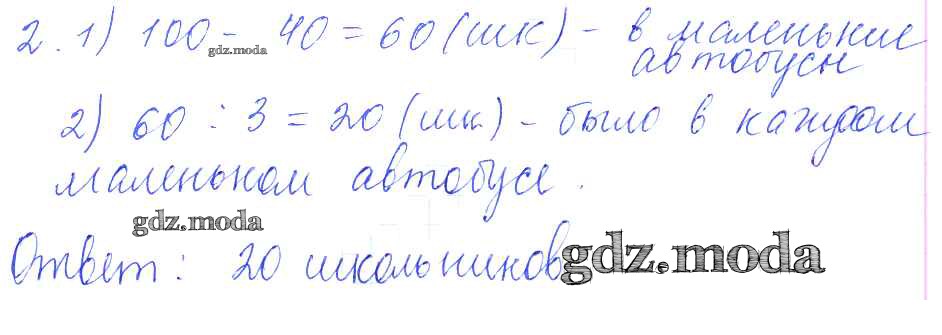 2. 1) 100 - 40 = 60 (шк) - в маленькие
gdz.moda
автобусы
2) 60 : 3 = 20 (шк.) - было в каждом
маленьком автобусе.
gdz.moda
Ответ: 20 школьников
gdz.moda